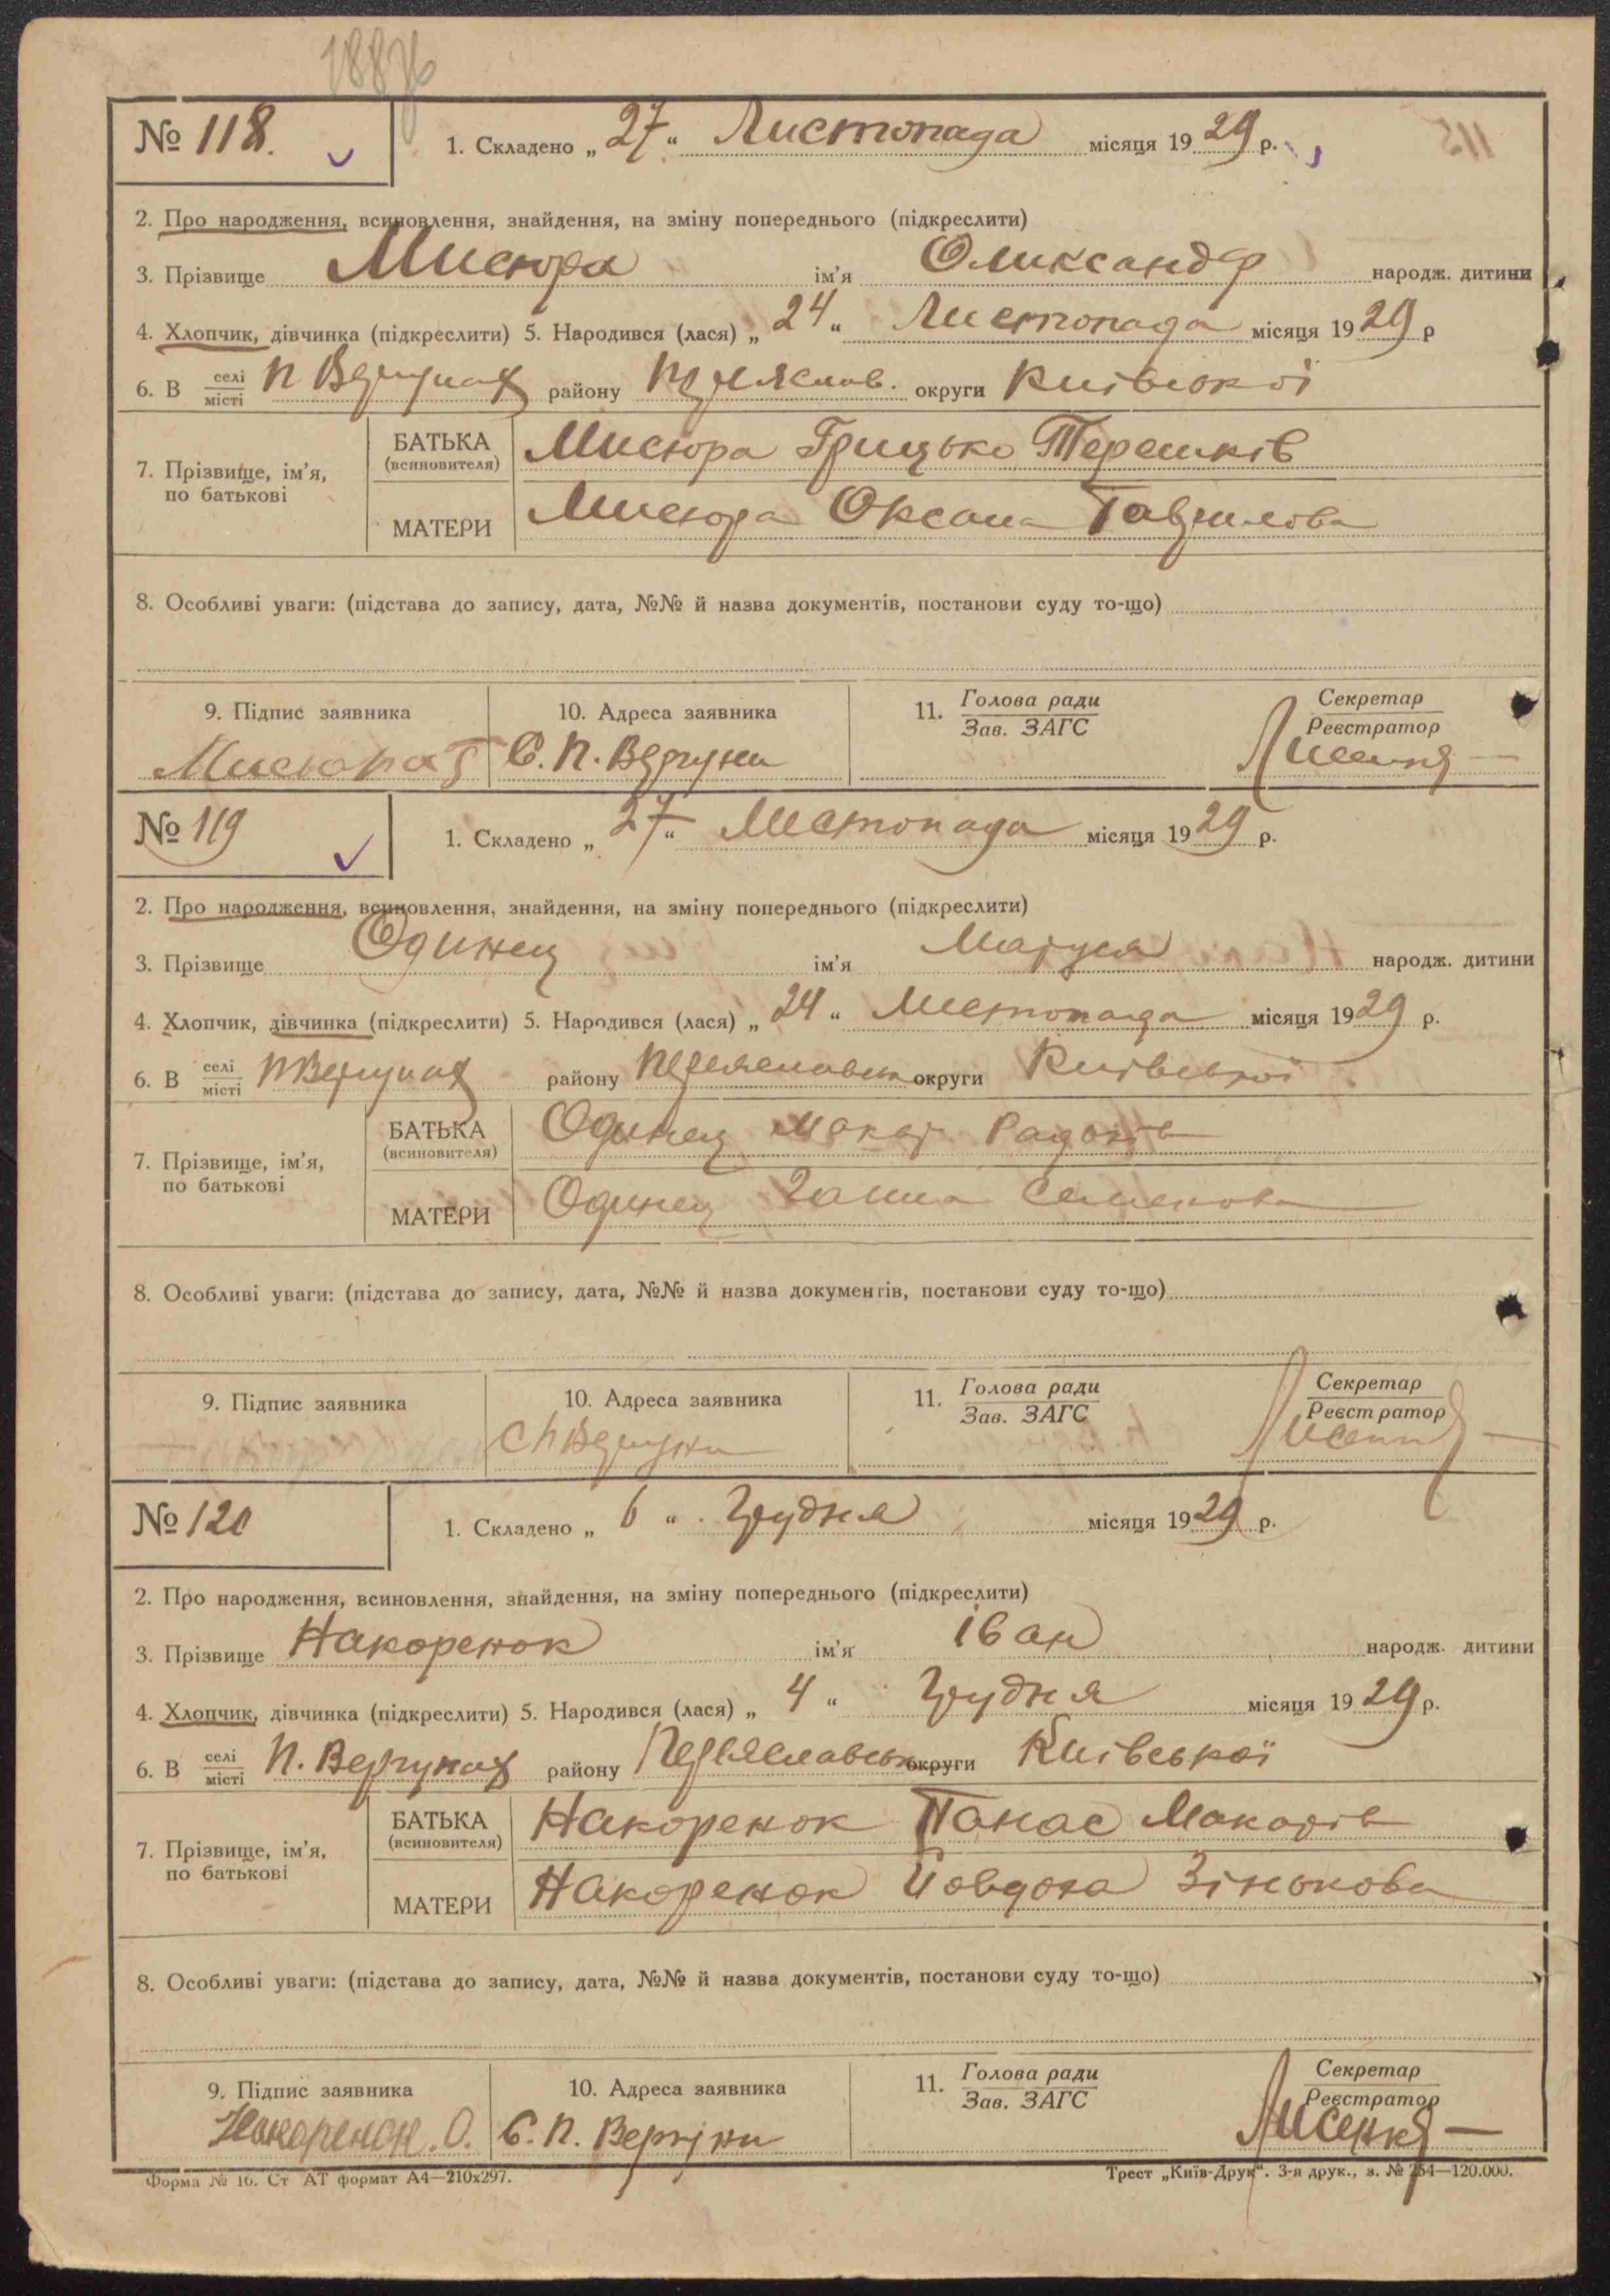 № 118. 1. Складено „27“ Листопада місяця 1929 р.
2. Про народження, всиновлення, знайдення, на зміну попереднього (підкреслити)
3. Прізвище Мисюра ім'я Оликсандр народж. дитини
4. Хлопчик, дівчинка (підкреслити) 5. Народився (лася) „24“ Листопада місяця 1929 р
6. В селі/місті П Вергунах району Переяслав. округи Київської
7. Прізвище, ім'я, по батькові
БАТЬКА (всиновителя) Мисюра Грицько Терешків
МАТЕРИ Мисюра Оксана Гаврилова
8. Особливі уваги: (підстава до запису, дата, №№ й назва документів, постанови суду то-що)
9. Підпис заявника 10. Адреса заявника 11. Голова ради/Зав. ЗАГС Секретар/Реєстратор
Мисюра Г С. П. Вергуни
№ 119 1. Складено „27“ Листопада місяця 1929 р.
2. Про народження, всиновлення, знайдення, на зміну попереднього (підкреслити)
3. Прізвище Одинец ім'я Маруся народж. дитини
4. Хлопчик, дівчинка (підкреслити) 5. Народився (лася) „24“ Листопада місяця 1929 р.
6. В селі/місті П Вергунах району Переяславськ округи Київської
7. Прізвище, ім'я, по батькові
БАТЬКА (всиновителя) Одинец Макар
МАТЕРИ Одинец Ганна Семенова
8. Особливі уваги: (підстава до запису, дата, №№ й назва документів, постанови суду то-що)
9. Підпис заявника 10. Адреса заявника 11. Голова ради/Зав. ЗАГС Секретар/Реєстратор
С П Вергуни
№ 120 1. Складено „6“ Грудня місяця 1929 р.
2. Про народження, всиновлення, знайдення, на зміну попереднього (підкреслити)
3. Прізвище Накоренок ім'я Іван народж. дитини
4. Хлопчик, дівчинка (підкреслити) 5. Народився (лася) „4“ Грудня місяця 1929 р.
6. В селі/місті П. Вергунах району Переяславськ округи Київської
7. Прізвище, ім'я, по батькові
БАТЬКА (всиновителя) Накоренок Панас Макарів
МАТЕРИ Накоренок Йовдоха Зінькова
8. Особливі уваги: (підстава до запису, дата, №№ й назва документів, постанови суду то-що)
9. Підпис заявника 10. Адреса заявника 11. Голова ради/Зав. ЗАГС Секретар/Реєстратор
Накоренок. О. С. П. Вергуни
Форма № 16. Ст АТ формат А4—210х297. Трест „Київ-Друк“. 3-я друк., з. № 254—120.000.